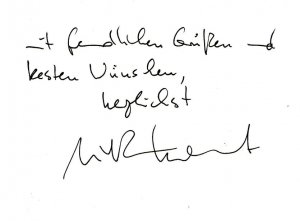 mit freundlichen Grüßen und
besten Wünschen,
herzlichst